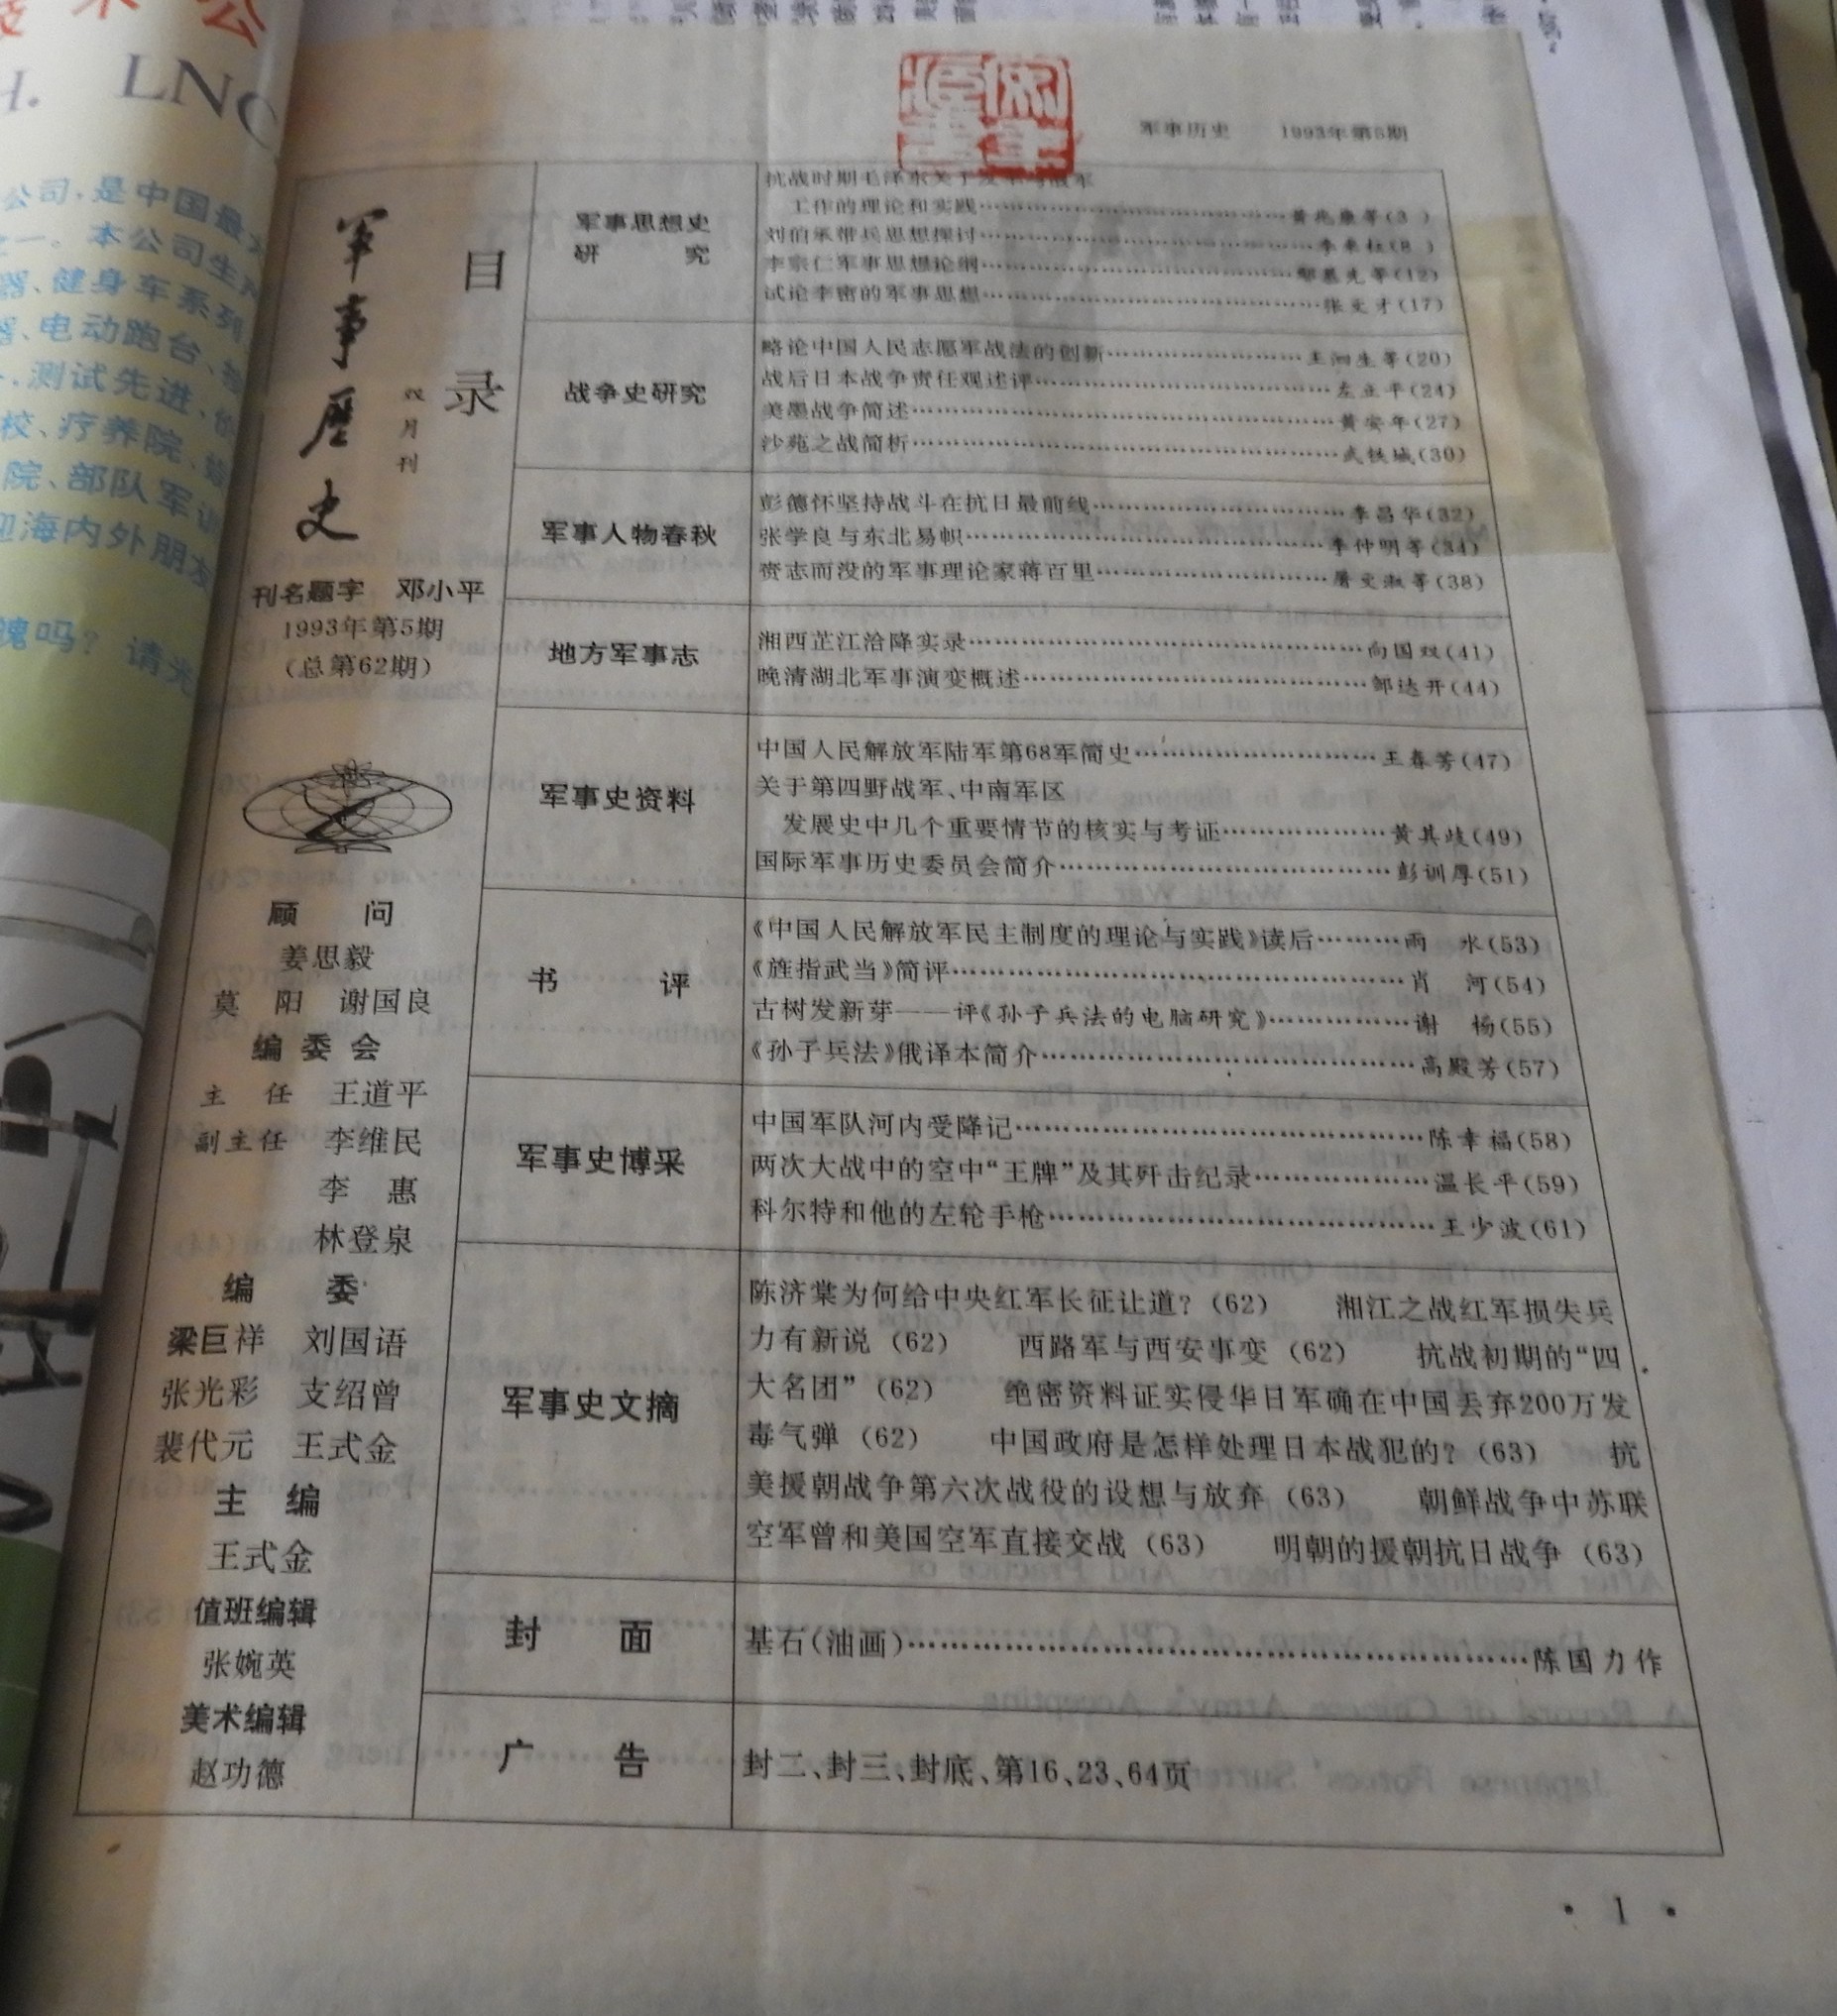 军事历史 1993年第5期
军事历史
双月刊
目录
刊名题字 邓小平
1993年第5期
(总第62期)
顾 问
姜思毅
莫 阳 谢国良
编委会
主 任 王道平
副主任 李维民
李 惠
林登泉
编 委
梁巨祥 刘国语
张光彩 支绍曾
裴代元 王式金
主 编
王式金
值班编辑
张婉英
美术编辑
赵功德
军事思想史
研 究
抗战时期毛泽东关于发军与敌军
工作的理论和实践……黄兆康等(3)
刘伯承带兵思想探讨……(8)
李宗仁军事思想论纲……等(12)
试论李密的军事思想……张文才(17)
战争史研究
略论中国人民志愿军战法的创新……王泗生等(20)
战后日本战争责任观述评……左立平(24)
美墨战争简述……黄安年(27)
沙苑之战简析……武铁城(30)
军事人物春秋
彭德怀坚持战斗在抗日最前线……李昌华(32)
张学良与东北易帜……李仲明等(34)
赍志而没的军事理论家蒋百里……屠文淑等(38)
地方军事志
湘西芷江洽降实录……向国双(41)
晚清湖北军事演变概述……邹达开(44)
军事史资料
中国人民解放军陆军第68军简史……王春芳(47)
关于第四野战军、中南军区
发展史中几个重要情节的核实与考证……黄其歧(49)
国际军事历史委员会简介……彭训厚(51)
书 评
《中国人民解放军民主制度的理论与实践》读后……雨 水(53)
《旌指武当》简评……肖 河(54)
古树发新芽——评《孙子兵法的电脑研究》……谢 杨(55)
《孙子兵法》俄译本简介……高殿芳(57)
军事史博采
中国军队河内受降记……陈幸福(58)
两次大战中的空中“王牌”及其歼击纪录……温长平(59)
科尔特和他的左轮手枪……王少波(61)
军事史文摘
陈济棠为何给中央红军长征让道？(62) 湘江之战红军损失兵
力有新说 (62) 西路军与西安事变 (62) 抗战初期的“四
大名团” (62) 绝密资料证实侵华日军确在中国丢弃200万发
毒气弹 (62) 中国政府是怎样处理日本战犯的？(63) 抗
美援朝战争第六次战役的设想与放弃 (63) 朝鲜战争中苏联
空军曾和美国空军直接交战 (63) 明朝的援朝抗日战争 (63)
封 面
基石(油画)……陈国力作
广 告
封二、封三、封底、第16、23、64页
·1·